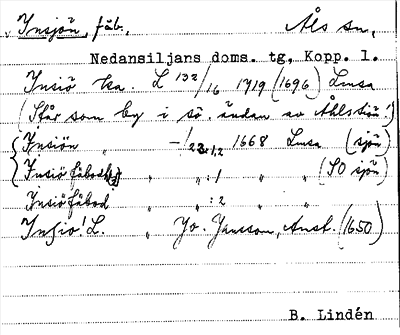 Insjön, fäb. Åls sn,
Nedansiljans doms. tg, Kopp. l.
Insiö ka. L 132/16 1719 (1696) Lmsa
(Står som by i sö. ändan av Åhlsiön!)
Insjön " -/23:1,2 1668 Lmsa (sjön)
Insiö fäbod " " :1 " " (SO sjön)
Insiö fäbod " " :2 " "
Insio! L. " Jo. Jansson, Amst. (1650)
B. Lindén